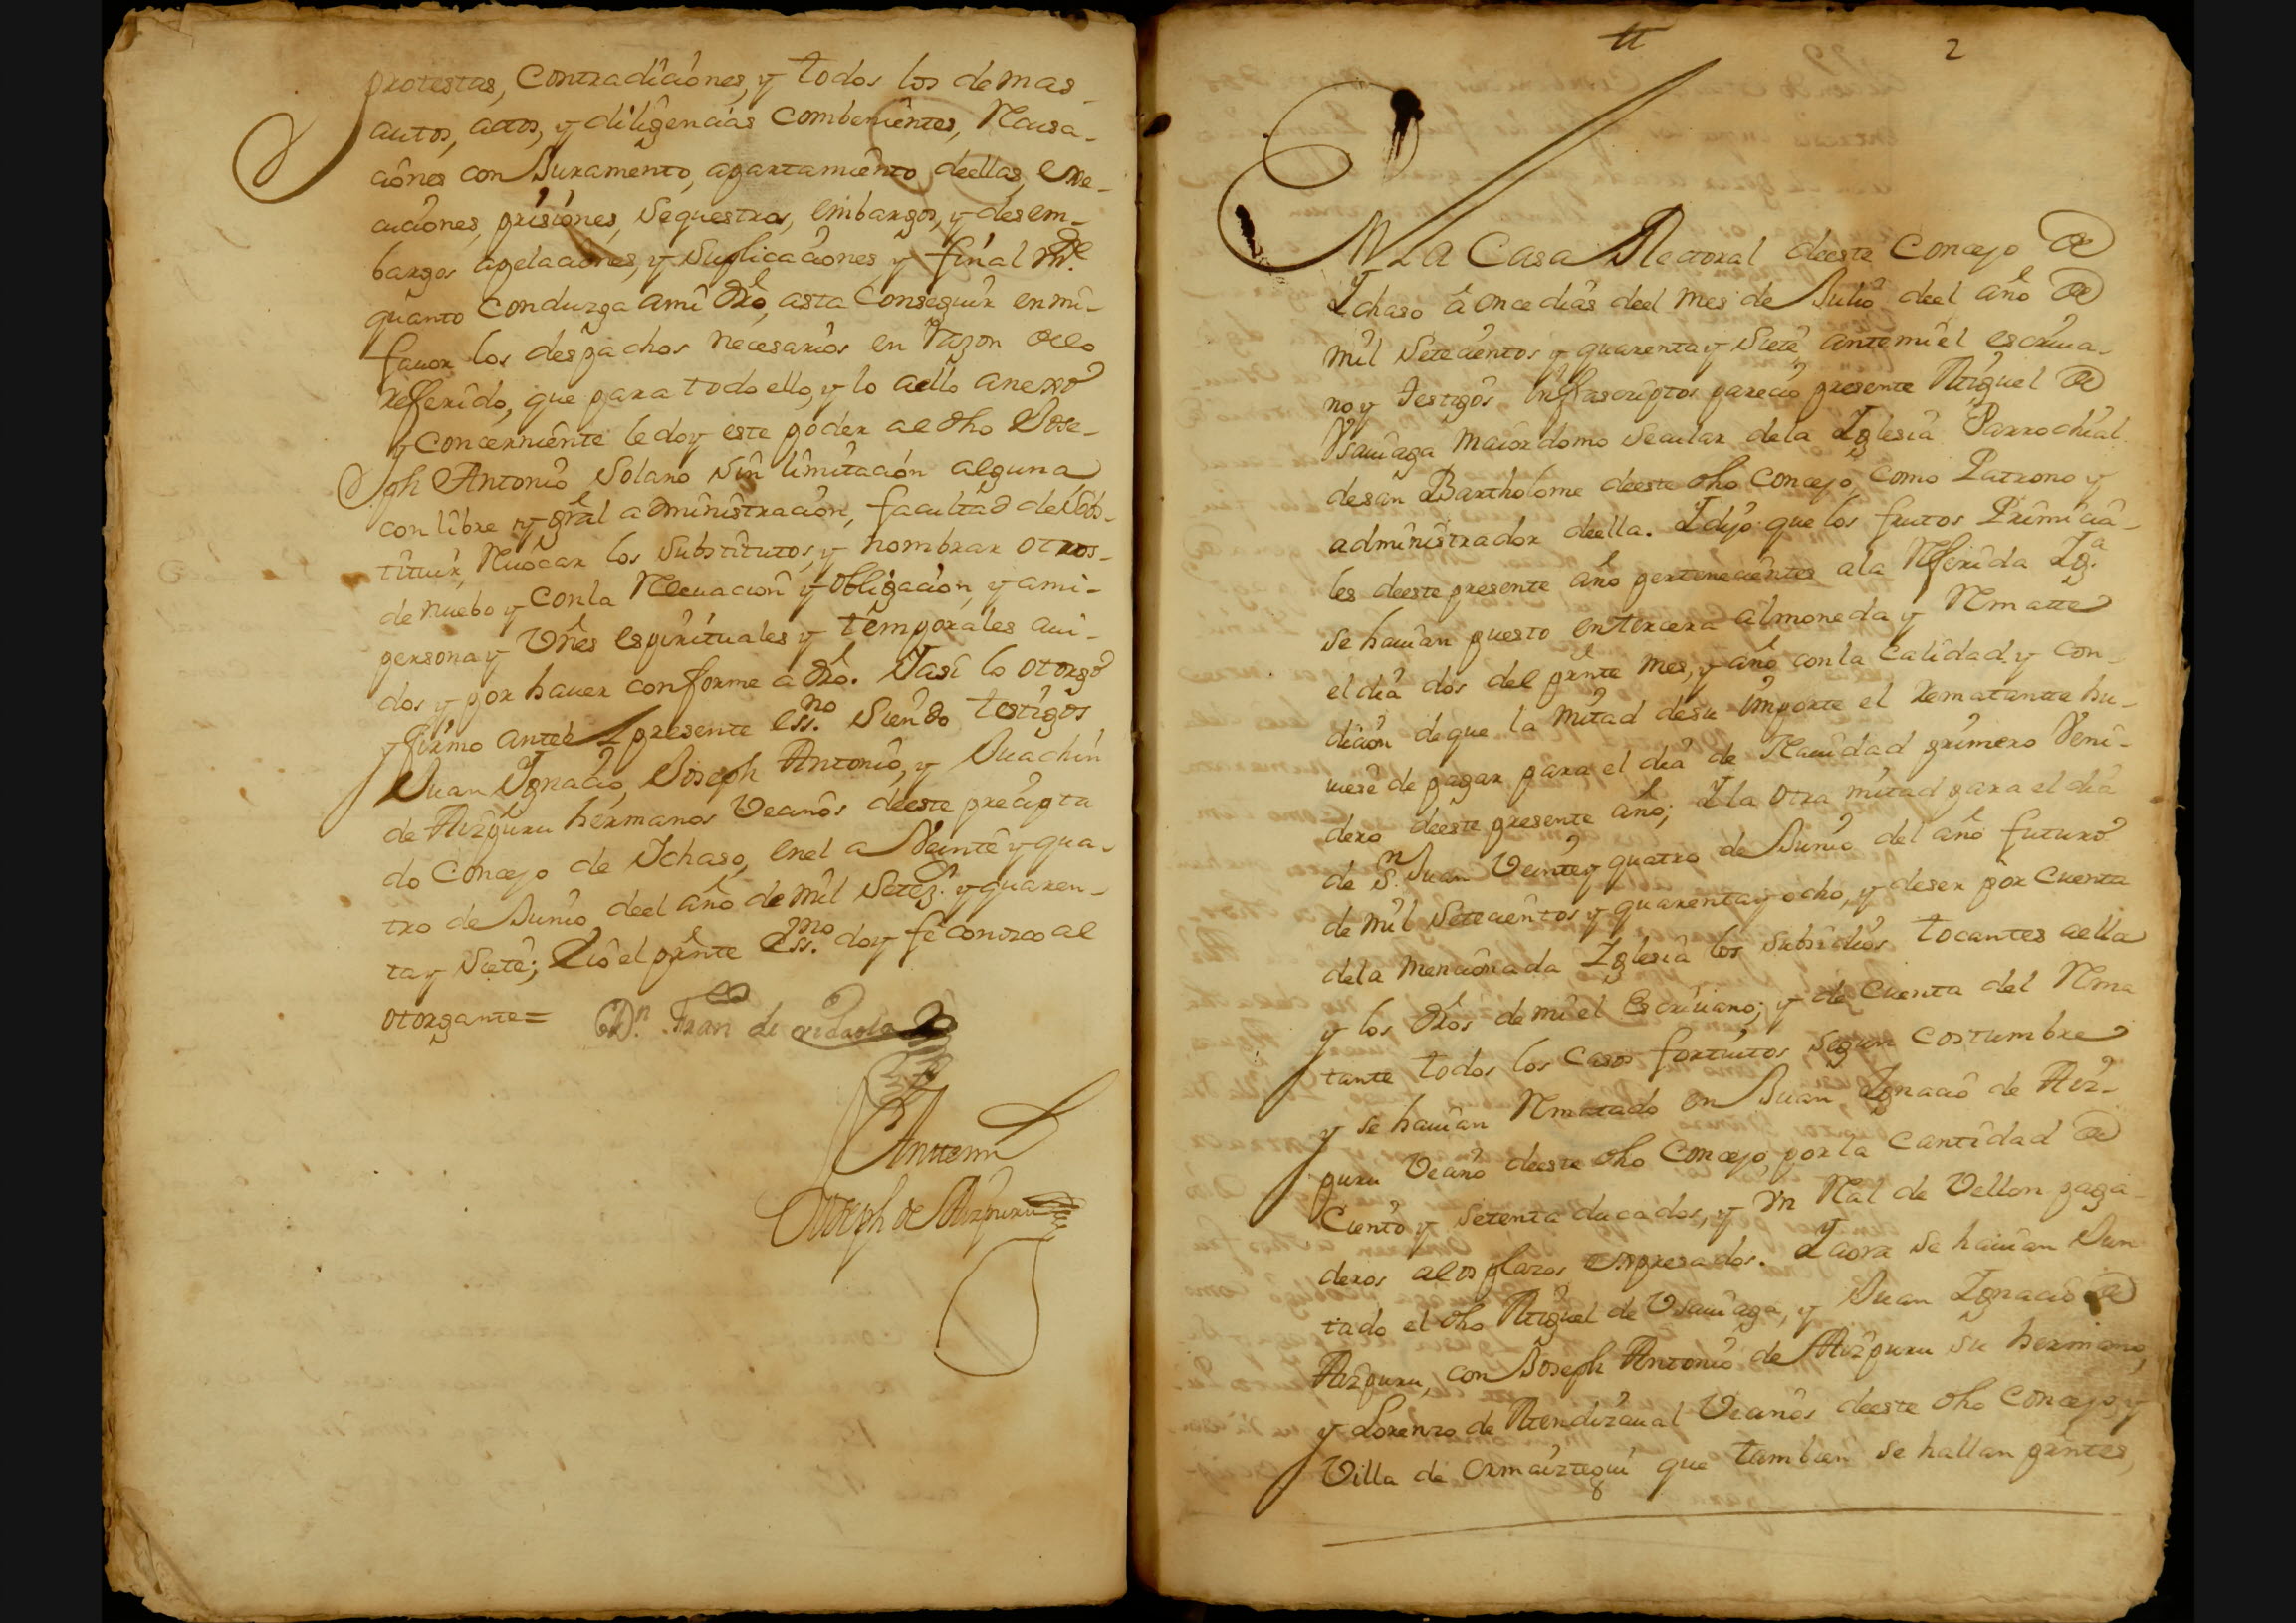 protestas, Contradiciones, y todos los demas
autos, actos, y diligencias combenientes, Recusa-
ciones con Juramento, apartamiento deellas, Exe-
cuciones, prisiones, sequestros, embargos, y desem-
bargos apelaciones, y suplicaciones y final mte.
quanto conduzga ami dro, asta Conseguir enmi-
favor los despachos necesarios en razon delo
referido, que para todo ello, y lo aello anexo
y concerniente ledoy este poder al dho Jose-
ph Antonio Solano sin limitacion alguna
con libre y gral administracion, facultad de subs-
tituir, revocar los substitutos, y nombrar otros-
de nuebo y con la relevacion y obligacion, y ami-
persona y Vnes espirituales y temporales avi-
dos y por haver conforme a dro. Yasi lo otorgo
y firmo ante el presente essno. siendo testigos
Juan Ygnacio, Joseph Antonio, y Juachin
de Aizpuru hermanos Vecinos deeste precipta
do Concejo de Ichaso, enel a Veinte y qua-
tro de Junio deel año de mil setez. y quaren-
ta y siete; Eio el prnte essno. doy fe conozco al
otorgante=
Dn. Fran de
Antemi
Joseph de Aizpuru
tt 2
EN LA Casa Rectoral deeste Concejo de
Ichaso â once dias deel mes de Julio deel año de
mil setecientos y quarenta y siete, antemi el escriva-
no y testigos infrascriptos parecio presente Miguel de
Vsaviaga maiordomo secular dela Iglesia Parrochial
desan Bartholome deeste dho concejo, como Patrono y
administrador deella. I dijo que los frutos Primicia-
les deeste presente año pertenecientes ala referida Iga.
se havian puesto entercera almoneda y rematte
el dia dos del prnte mes, y año con la calidad, y con-
dicion deque la mitad desu importe el rematantte hu-
viese de pagar para el dia de Navidad primero Veni-
dero deeste presente año; I la otra mitad para el dia
de Sn. Juan Veinte y quatro de Junio del año futuro
de mil setecientos y quarenta y ocho, y deser por cuenta
dela mencionada Iglesia los subsidios tocantes aella
y los dros demi el Escrivano; y de Cuenta del rema
tante todos los casos fortuitos, segun costumbre
y se havian rematado en Juan Ignacio de Aiz-
puru Vecino deeste dho Concejo, por la cantidad de
Ciento y setenta ducados, y Vn Real de Vellon paga-
deros alos plazos expresados. Y aora se havian Jun
tado el dho Miguel de Vsaviaga, y Juan Ignacio de
Aizpuru, con Joseph Antonio de Aizpuru su hermano,
y Lorenzo de Mendizaval Vecinos deeste dho Concejo, y
Villa de Ormaiztegui que tambien se hallan prntes,